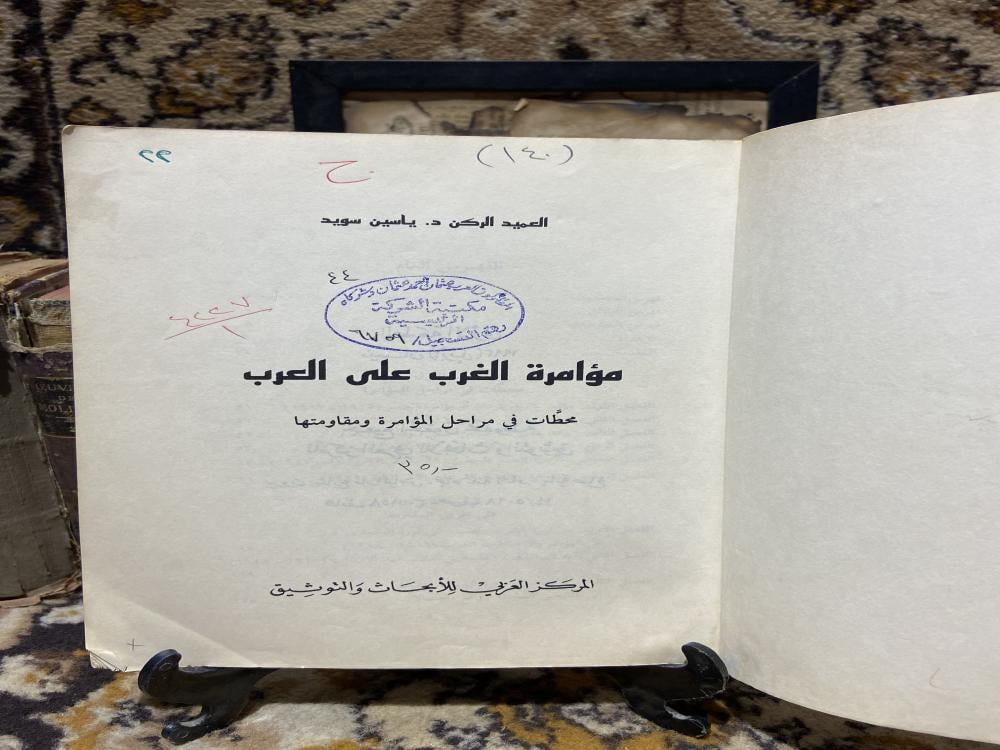 ٢٩
ح
(١٤٠)
العميد الركن د. ياسين سويد
٤٤
مكتبة الشركة
رقم التسجيل / ٦٧٥٩
٤٢٢٧
١
مؤامرة الغرب على العرب
محطَّات في مراحل المؤامرة ومقاومتها
المركز العَربي للأبحاث وَالتوثيق
OEUV
MOLI